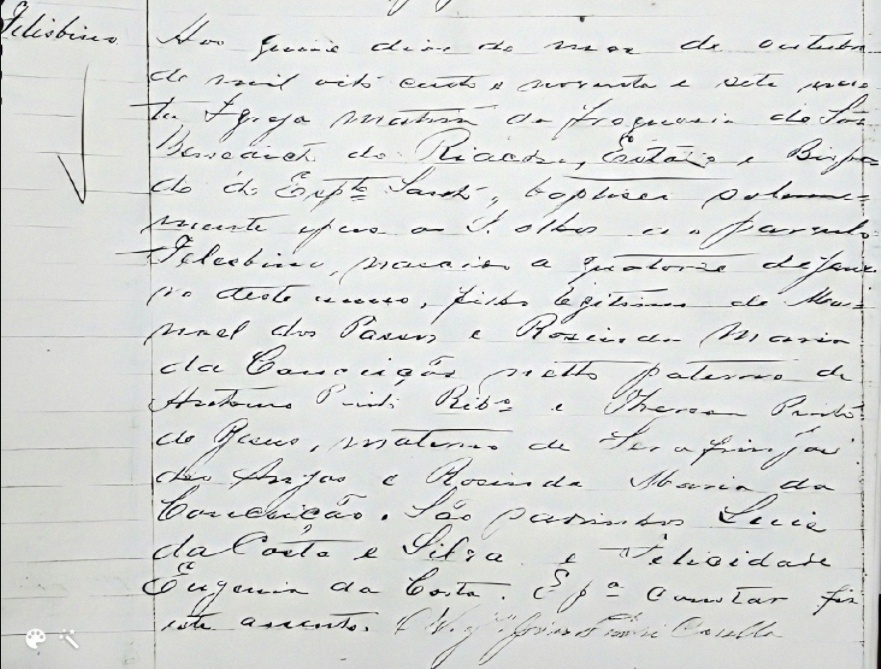 Felisbino
Aos quinze dias do mez de outubro
de mil oito cento e noventa e sete nesta
ta Igreja Matriz da Freguesia de São
Benedicto do Riacho, Estado e Bispa=
do do Esp.to Santo, baptisei solemne=
mente e pus os S. olhos a o parvulo
Felesbino, nascido a quatorze de Janei
ro deste anno, filho legitimo de Ma=
noel dos Passos e Rosinda Maria
da Conceição netto paterno de
Antonio Pinto Rib.o e Thereza Pinto
de Jesus, materno de Serafim José
dos Anjos e Rosinda Maria da
Conceição. São padrinhos Luis
da Costa e Silva e Felicidade
Eugenia da Costa. E p.a constar fiz
este assento. O Vig.o